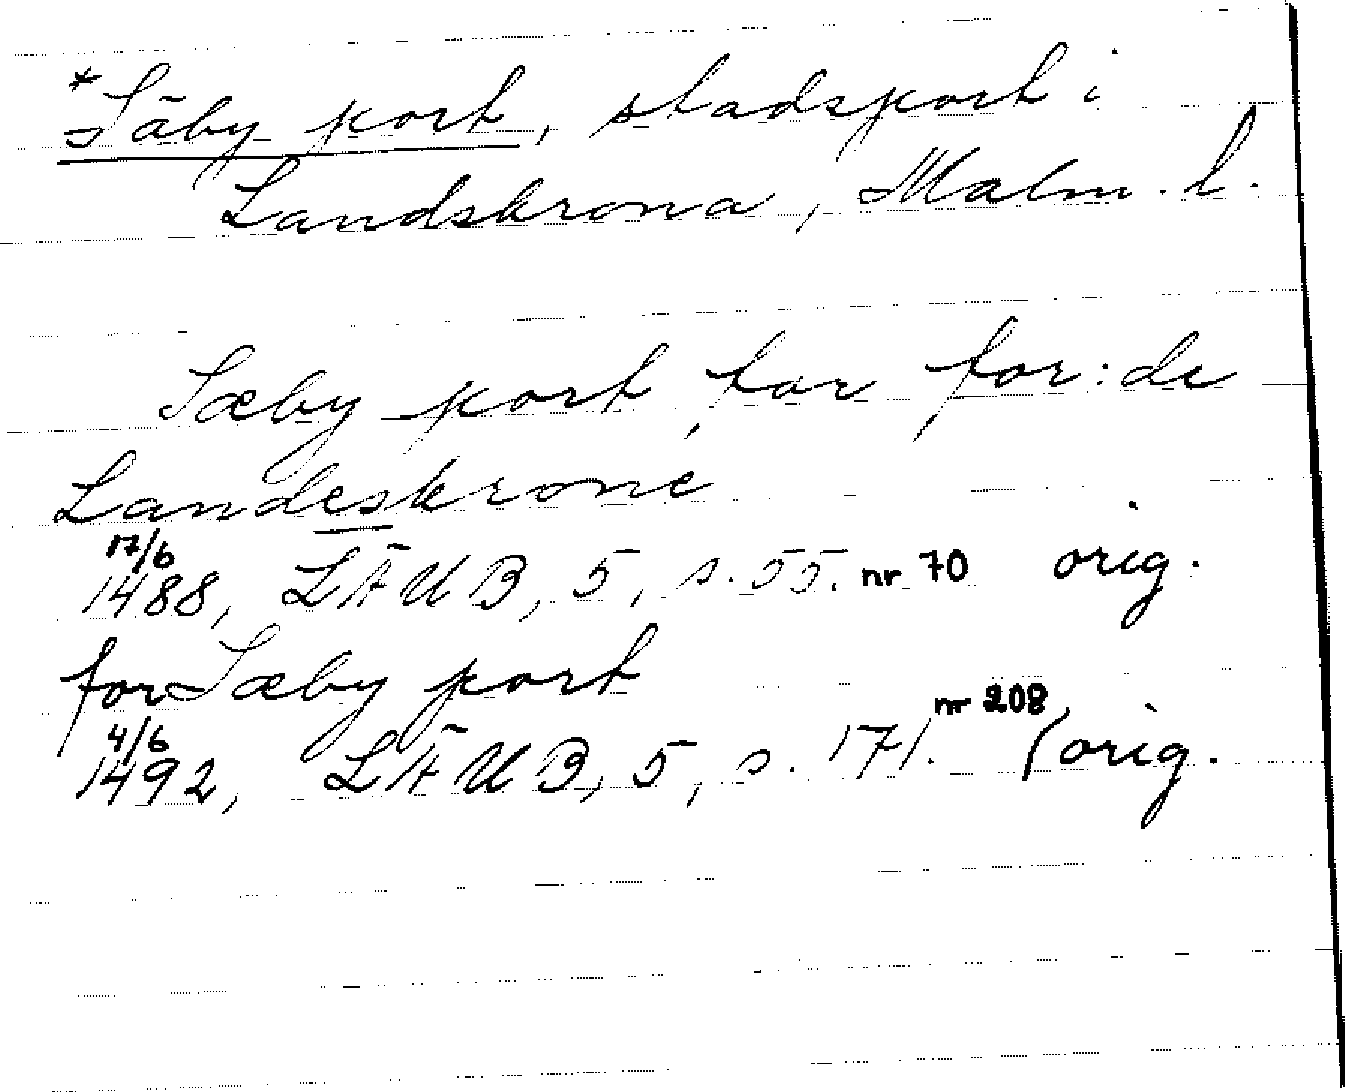 *Säby port, stadsport i
Landskrona, Malm. l.
Sæby port for for:de
Landeskrone
17/6
1488, LÄUB, 5, s. 55. nr 70 orig.
for Sæby port
4/6 nr 208
1492, LÄUB, 5, s. 171. (orig.